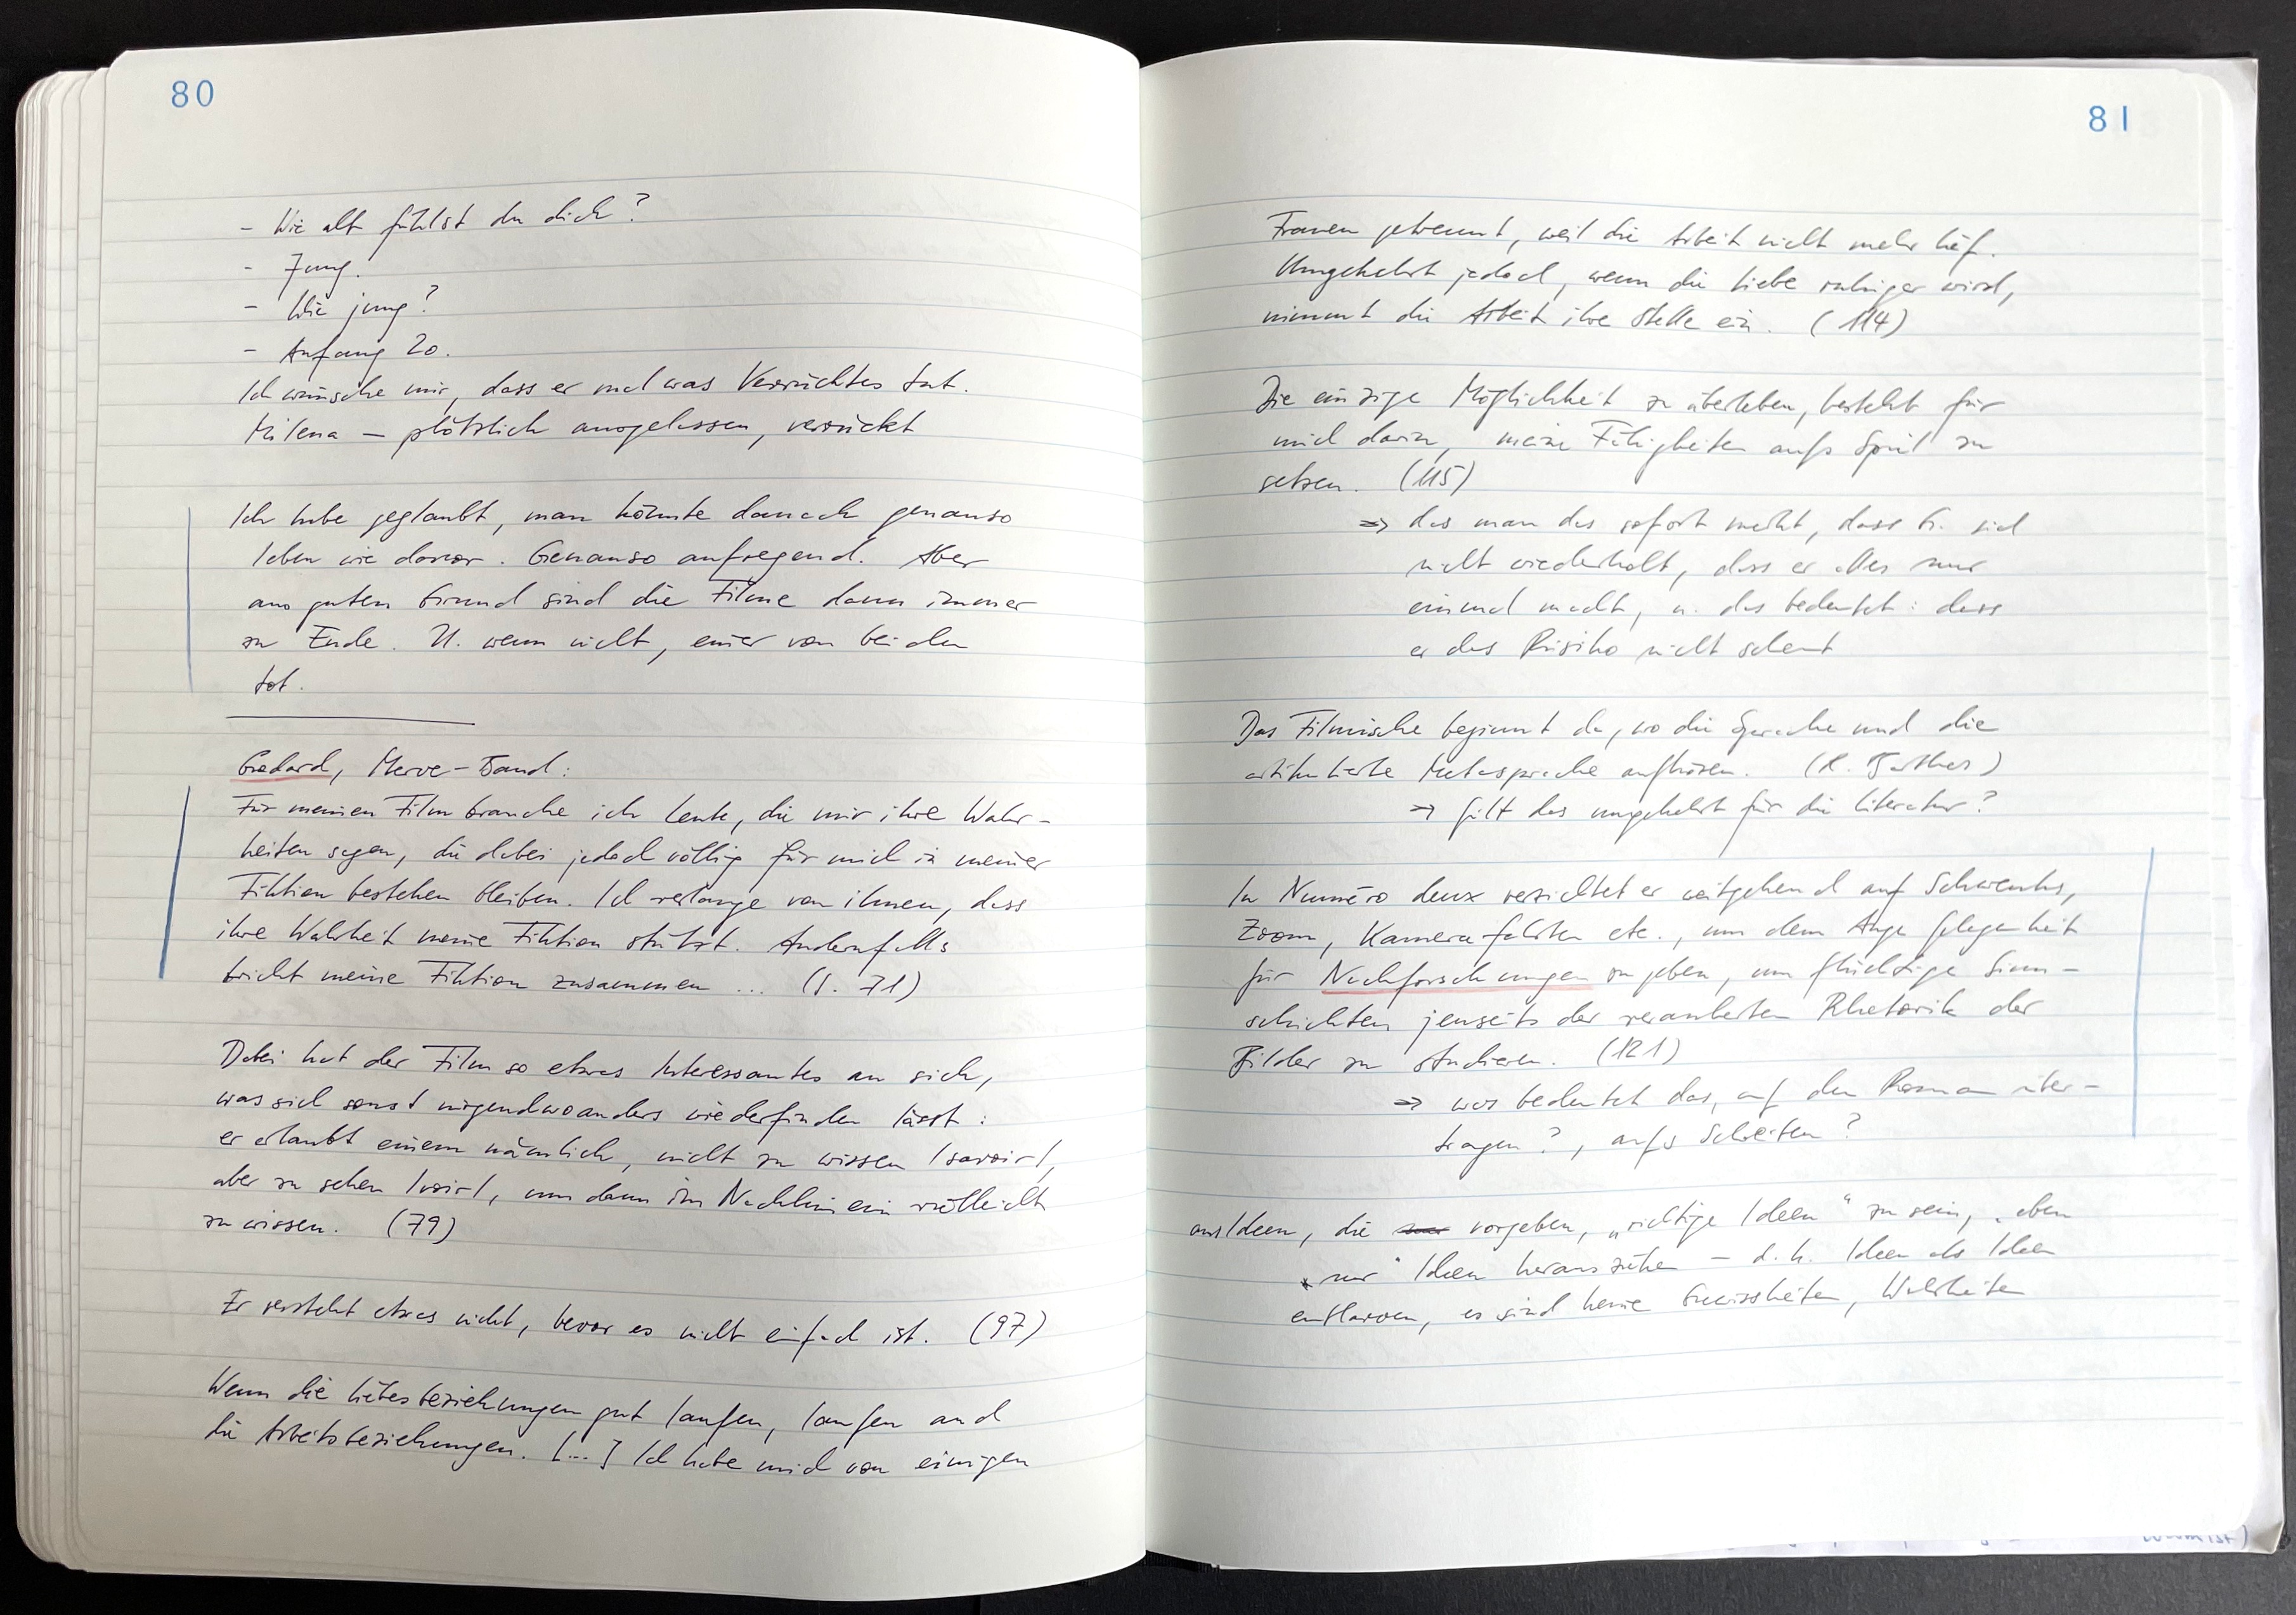 80
- Wie alt fühlst du dich?
- Jung.
- Wie jung?
- Anfang 20.
Ich wünsche mir, dass er mal was Verrücktes tut.
Milena – plötzlich ausgelassen, verrückt
Ich habe geglaubt, man könnte danach genauso
leben wie davor. Genauso aufregend. Aber
aus guten Grund sind die Filme dann immer
zu Ende. U. wenn nicht, einer von beiden
tot.
Godard, Merve-Band:
Für meinen Film brauche ich Leute, die mir ihre Wahr-
heiten sagen, die dabei jedoch völlig für mich in meiner
Fiktion bestehen bleiben. Ich verlange von ihnen, dass
ihre Wahrheit meine Fiktion stützt. Andernfalls
bricht meine Fiktion zusammen ... (S. 71)
Dabei hat der Film so etwas Interessantes an sich,
was sich sonst nirgendwoanders wiederfinden lässt:
er erlaubt einem nämlich, nicht zu wissen /savoir/,
aber zu sehen /voir/, um dann im Nachhinein vielleicht
zu wissen. (79)
Er versteht etwas nicht, bevor es nicht einfach ist. (97)
Wenn die Liebesbeziehungen gut laufen, laufen auch
die Arbeitsbeziehungen. [...] Ich habe mich von einigen
81
Frauen getrennt, weil die Arbeit nicht mehr lief.
Umgekehrt jedoch, wenn die Liebe ruhiger wird,
nimmt die Arbeit ihre Stelle ein. (114)
Die einzige Möglichkeit zu überleben, besteht für
mich darin, meine Fähigkeiten aufs Spiel zu
setzen. (115)
=> das man das sofort merkt, dass G. sich
nicht wiederholt, dass er alles nur
einmal macht, u. das bedeutet: dass
er das Risiko nicht scheut
Das Filmische beginnt da, wo die Sprache und die
artikulierte Metasprache aufhören. (R. Barthes)
=> gilt das umgekehrt für die Literatur?
In Numéro deux verzichtet er weitgehend auf Schwenks,
Zoom, Kamerafahrten etc., um dem Auge Gelegenheit
für Nachforschungen zu geben, um flüchtige Sinn-
schichten jenseits der verankerten Rhetorik der
Bilder zu studieren. (121)
=> was bedeutet das, auf den Roman über-
tragen?, aufs Schreiben?
aus Ideen, die vorgeben, „richtige Ideen“ zu sein, „eben
nur“ Ideen herausziehen – d.h. Ideen als Ideen
entlarven, es sind keine Gewissheiten, Wahrheiten